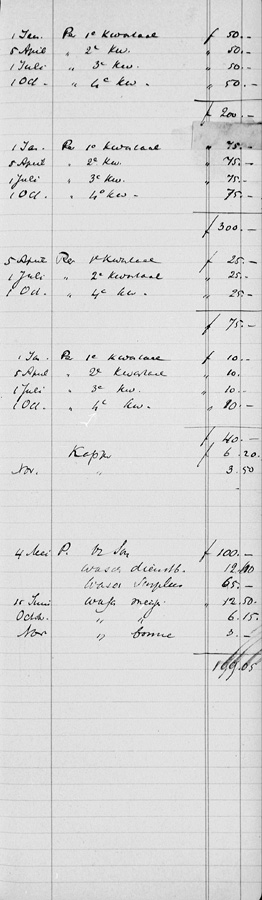 1 Jan. Per 1e Kwartaal f 50.-
5 April „ 2e Kw. „ 50.-
1 Juli „ 3e Kw. „ 50.-
1 Oct. „ 4e Kw. „ 50.-
f 200.-
1 Jan. Per 1e Kwartaal „ 75.-
5 April „ 2e Kw. „ 75.-
1 Juli „ 3e Kw. „ 75.-
1 Oct. „ 4e Kw. 75.-
f 300.-
5 April Per 1e Kwartaal f 25.-
1 Juli „ 2e Kwartaal „ 25.-
1 Oct. „ 4e Kw. „ 25.-
f 75.-
1 Jan. Per 1e Kwartaal f 10.-
5 April „ 2e Kwartaal „ 10.
1 Juli „ 3e Kw. „ 10.-
1 Oct. „ 4e Kw. „ 10.-
f 40.-
f 6.20.
Nov. „ 3.50
4 Mei P. f 100.-
wasch dienstb.
wasch Surplus 65.-
15 Juni wasch „ 12.50
Octob. „ „ 6.15
Nov „ 3.-
199.05